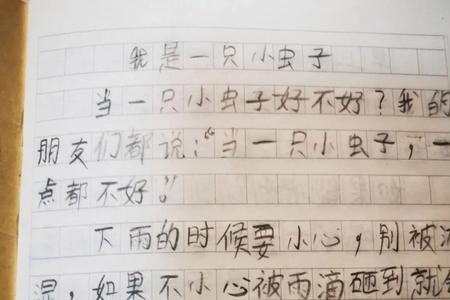 我是一只小虫子
当一只小虫子好不好？我的
朋友们都说："当一只小虫子，一
点都不好。"
下雨的时候要小心，别被
湿，如果不小心被雨滴砸到就